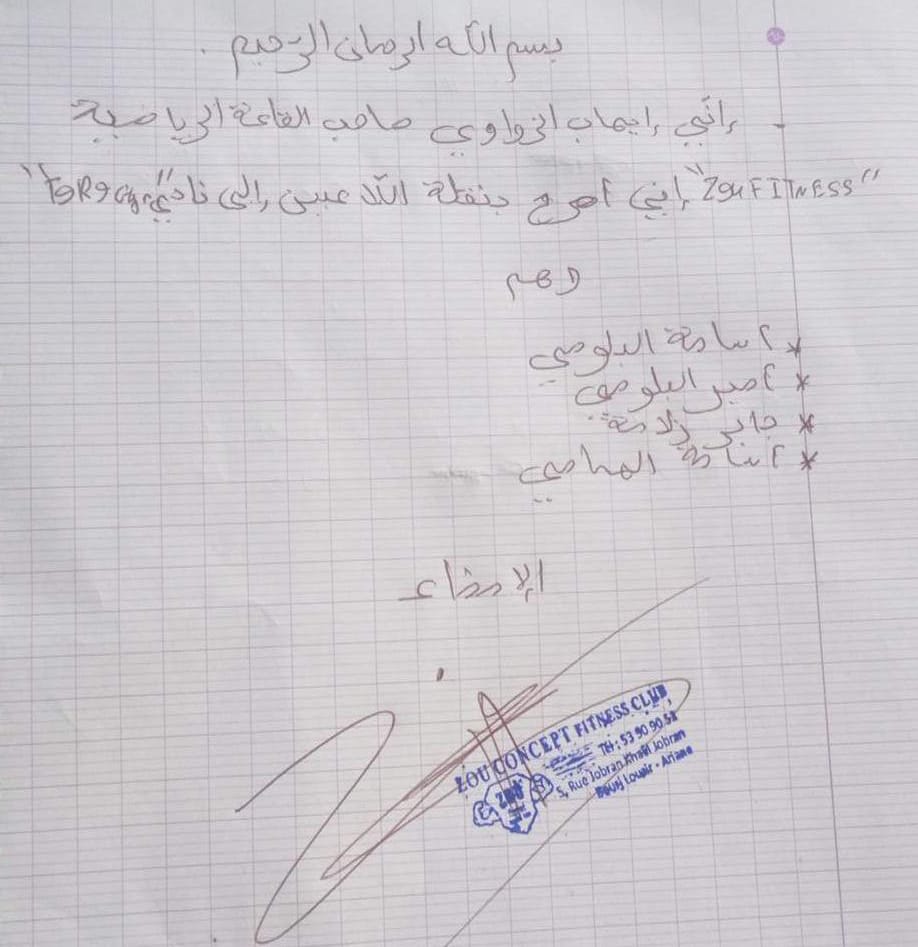 بسم الله الرحمان الرحيم .
- إنّي إيهاب الزواوي صاحب القاعة الرياضية
"ZouFITNESS" إني أصرح بنقلة اللاعبين إلى نادي
وهم
* أسامة البلوصي
* أمير البلوصي
* جابر
* أسامة
الإمضاء
ZOU CONCEPT FITNESS CLUB
Tél : 53 90 90 52
5, Rue Jobran Khalil Jobran
Borj Louzir - Ariana
ZOU